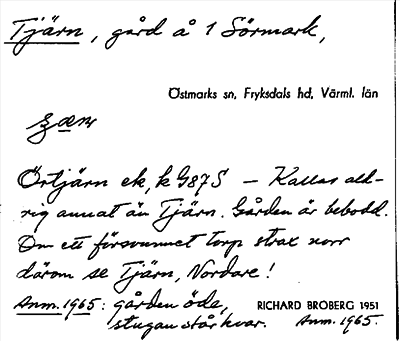 Tjärn, gård å 1 Sörmark,
Östmarks sn, Fryksdals hd, Värml. län
Örtjärn ek, k G87S – Kallas ald-
rig annat än Tjärn. Gården är bebodd.
Om ett försvunnet torp strax norr
därom se Tjärn, Nordare!
Anm. 1965: gården öde,
RICHARD BROBERG 1951
stugan står kvar. Anm. 1965.